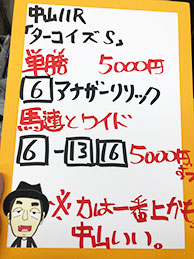 中山11R
「ターコイズS」
単勝 5000円
6 アナザーリリック
馬連とワイド
6-13 16 5000円
ずつ
※力は一番上かも
中山いい。